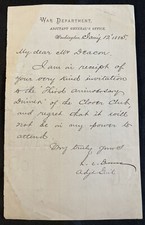 WAR DEPARTMENT,
ADJUTANT GENERAL'S OFFICE,
Washington, Jany 12 1885
My dear Mr Deacon
I am in receipt of
your very kind invitation
to the "Third anniversary
Dinner" of the Clover Club,
and regret that it will
not be in my power to
attend
Very truly yours
R. C. Drum
Adjt Genl